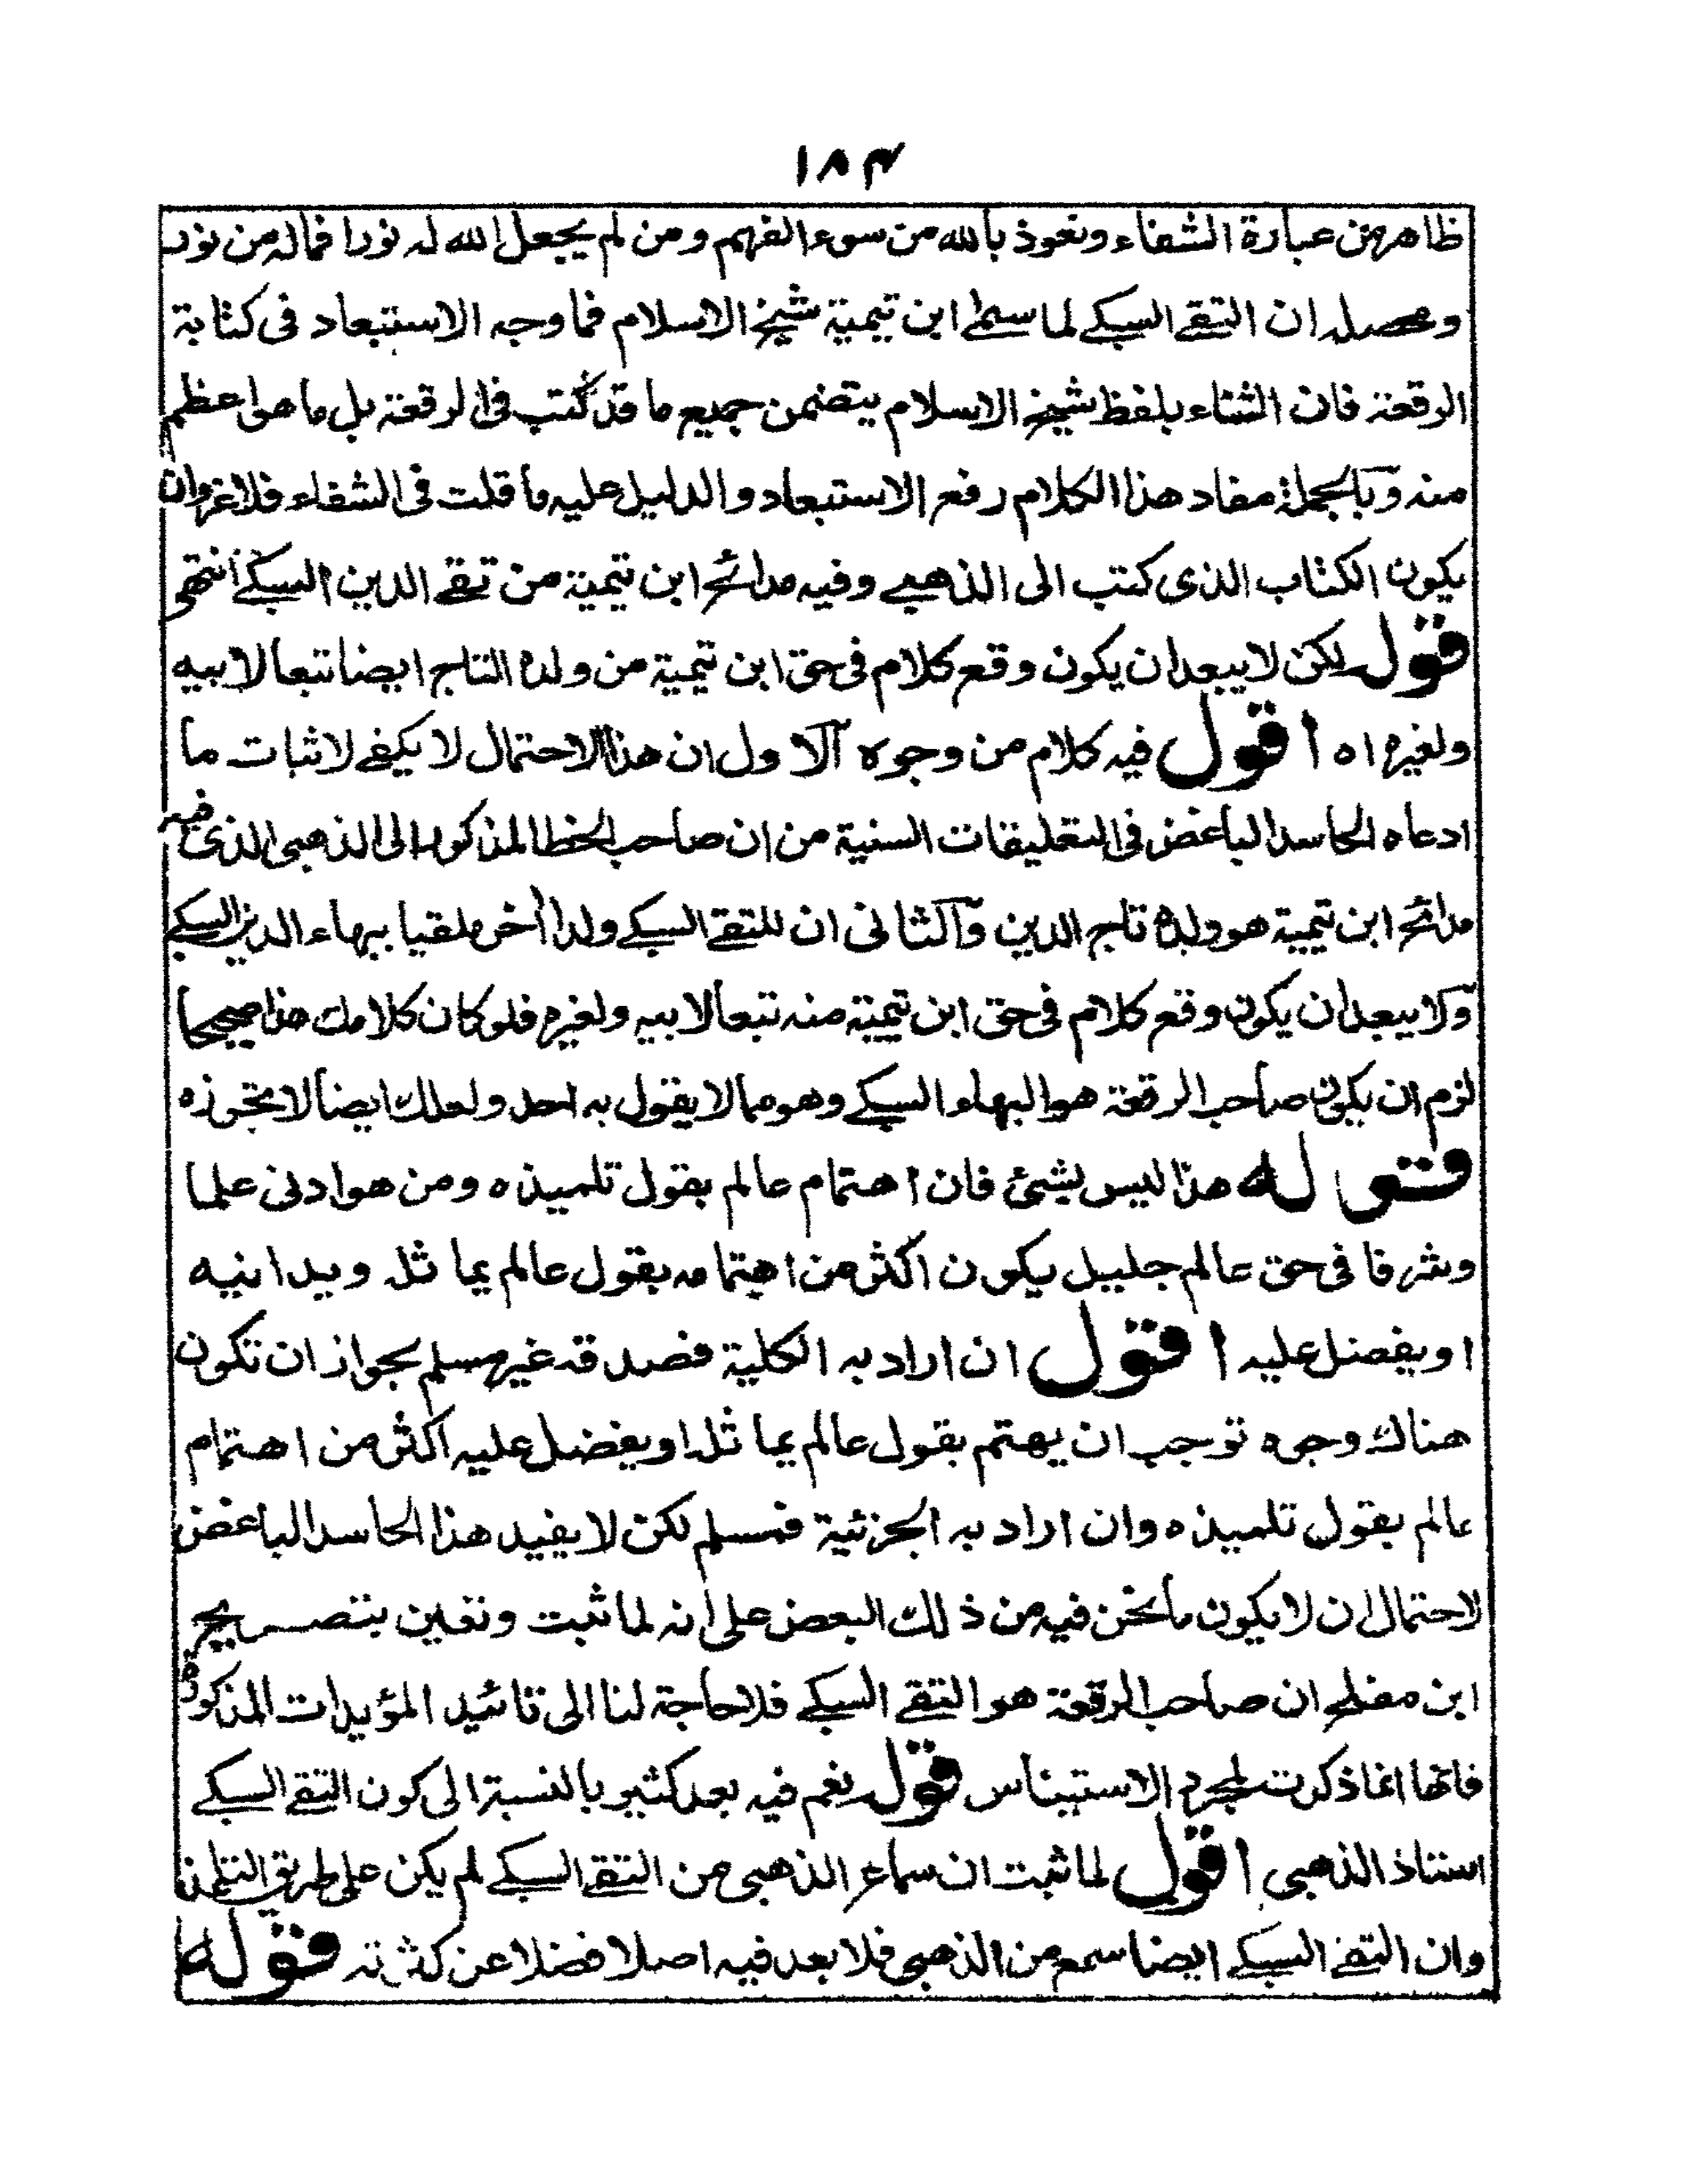 ١٨۴
ظاهر من عبارة الشفاء ونعوذ بالله من سوء الفهم ومن لم يجعل الله له نورا فماله من نور
ومحصله ان التقے السبكے لما سمى ابن تيمية شيخ الاسلام فما وجه الاستبعاد فى كتابة
الرقعة فان الثناء بلفظ شيخ الاسلام يتضمن جميع ما قد كتب فى الرقعة بل ما هو اعظم
منه وبالجملة مفاد هذا الكلام رفع الاستبعاد والدليل عليه ما قلت فى الشفاء فلا غروان
يكون الكتاب الذى كتب الى الذهبے وفيه مدائح ابن تيمية من تقے الدين السبكے انتهى
قوله لكن لا يبعد ان يكون وقع كلام فى حق ابن تيمية من ولده التاج ايضا تبعا لابيه
ولغيره اه اقول فيه كلام من وجوه الاول ان هذا الاحتمال لا يكفے لاثبات ما
ادعاه الحاسد الباغض فى التعليقات السنية من ان صاحب الخط المذكور الى الذهبى الذى فيه
مدائح ابن تيمية هو ولده تاج الدين والثانى ان للتقے السبكے ولدا اخر ملقبا ببهاء الدين السبكے
ولا يبعد ان يكون وقع كلام فى حق ابن تيمية منه تبعا لابيه ولغيره فلو كان كلامك هذا صحيحا
لزم ان يكون صاحب الرقعة هو البهاء السبكے وهو مما لا يقول به احد ولعلك ايضا لا تجوزه
قوله هذا ليس بشئ فان اهتمام عالم بقول تلميذه ومن هو ادنى علما
وشرفا فى حق عالم جليل يكون اكثر من اهتمامه بقول عالم يماثله ويدانيه
او يفضل عليه اقول ان اراد به الكلية فصدقه غير مسلم بجواز ان تكون
هناك وجوه توجب ان يهتم بقول عالم يماثله او يفضل عليه اكثر من اهتمام
عالم بقول تلميذه وان اراد به الجزئية فمسلم لكن لا يفيد هذا الحاسد الباغض
لاحتمال ان لا يكون ما نحن فيه من ذلك البعض على انه لما ثبت وتعين بتصريح
ابن مفلح ان صاحب الرقعة هو التقے السبكے فلا حاجة لنا الى تائيد المؤيدات المذكورة
فانها انما ذكرت لمجرد الاستيناس قوله نعم فيه بعد كثير بالنسبة الى كون التقے السبكے
استاذ الذهبى اقول لما ثبت ان سماع الذهبى من التقے السبكے لم يكن على طريق التلمذ
وان التقے السبكے ايضا سمع من الذهبى فلا بعد فيه اصلا فضلا عن كثرته قوله